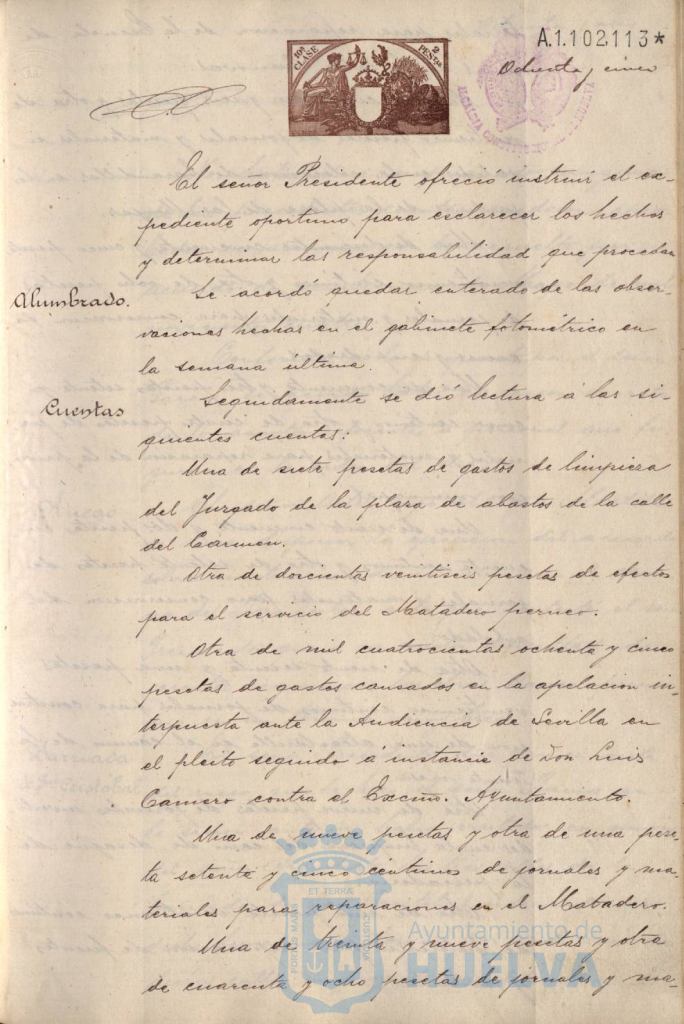 A.1.102.113*
10ª CLASE
2 PESETAS
Ochenta y cinco
ALCALDIA CONSTITUCIONAL DE HUELVA
El señor Presidente ofreció instruir el ex-
pediente oportuno para esclarecer los hechos
y determinar las responsabilidad que procedan
Alumbrado.
Se acordó quedar enterado de las obser-
vaciones hechas en el gabinete fotométrico en
la semana última.
Cuentas
Seguidamente se dió lectura á las si-
guientes cuentas:
Una de siete pesetas de gastos de limpieza
del Juzgado de la plaza de abastos de la calle
del Carmen.
Otra de doscientas veintiseis pesetas de efectos
para el servicio del Matadero perneo.
Otra de mil cuatrocientas ochenta y cinco
pesetas de gastos causados en la apelacion in-
terpuesta ante la Audiencia de Sevilla en
el pleito seguido á instancia de Don Luis
Camero contra el Excmo. Ayuntamiento.
Una de nueve pesetas y otra de una pese-
ta setenta y cinco céntimos de jornales y ma-
teriales para reparaciones en el Matadero.
Una de treinta y nueve pesetas y otra
de cuarenta y ocho pesetas de jornales y ma-
ET TERRÆ
Ayuntamiento de
HUELVA